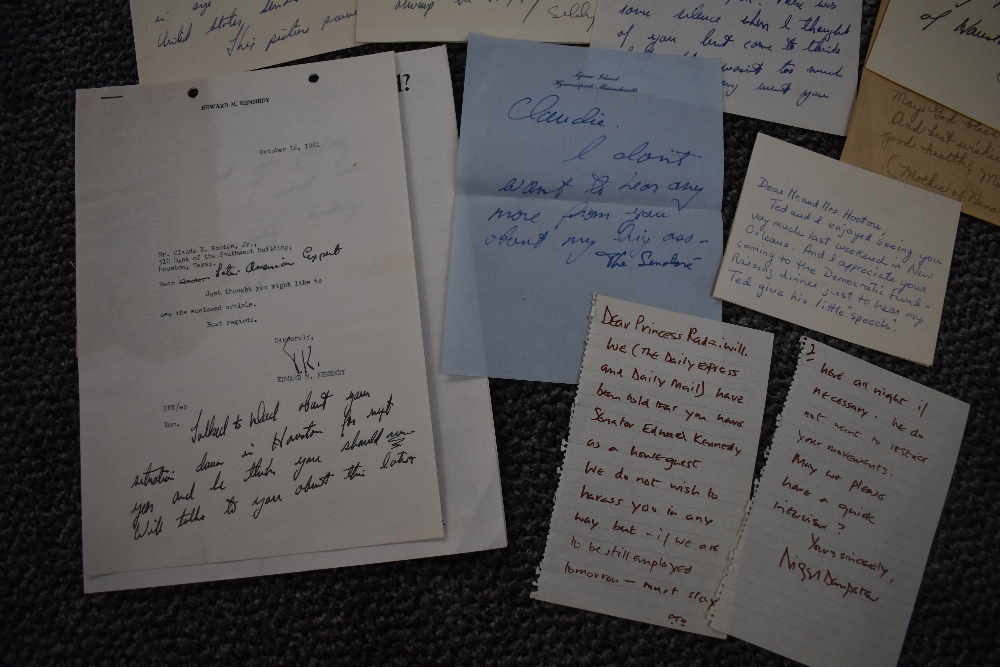 United States,
This picture
always be
Siddy
some silence when I thought
of you but came to think
want too much
went you
of
May God bless
And best wishes
good health,
(Mother of
EDWARD M. KENNEDY
October 16, 1961
Mr. Claude E. Hooton, Jr.,
310 Bank of the Southwest Building,
Houston, Texas.
Dear Latin American Expert
Just thought you might like to
see the enclosed article.
Best regards.
Sincerely,
EDWARD M. KENNEDY
EMK/
Enc.
Talked to about your
situation down in Houston for next
year and he thinks you should run
Will talk to you about this later
l?
Squaw Island
Hyannisport, Massachusetts
Claudie.
I don't
want to hear any
more from you
about my big ass-
The Senator
Dear Mr. and Mrs. Hooton,
Ted and I enjoyed seeing you
very much last weekend in New
Orleans. And I appreciate your
coming to the Democratic Fund-
Raising dinner just to hear my
Ted give his little "speech".
Dear Princess Radziwill.
We (The Daily Express
and Daily Mail) have
been told that you have
Senator Edward Kennedy
as a houseguest
We do not wish to
harass you in any
way but - if we are
to be still employed
tomorrow - must stay
PTO
2
here all night if
necessary. We do
not want to restrict
your movements.
May we please
have a quick
interview?
Yours sincerely,
Nigel Dempster